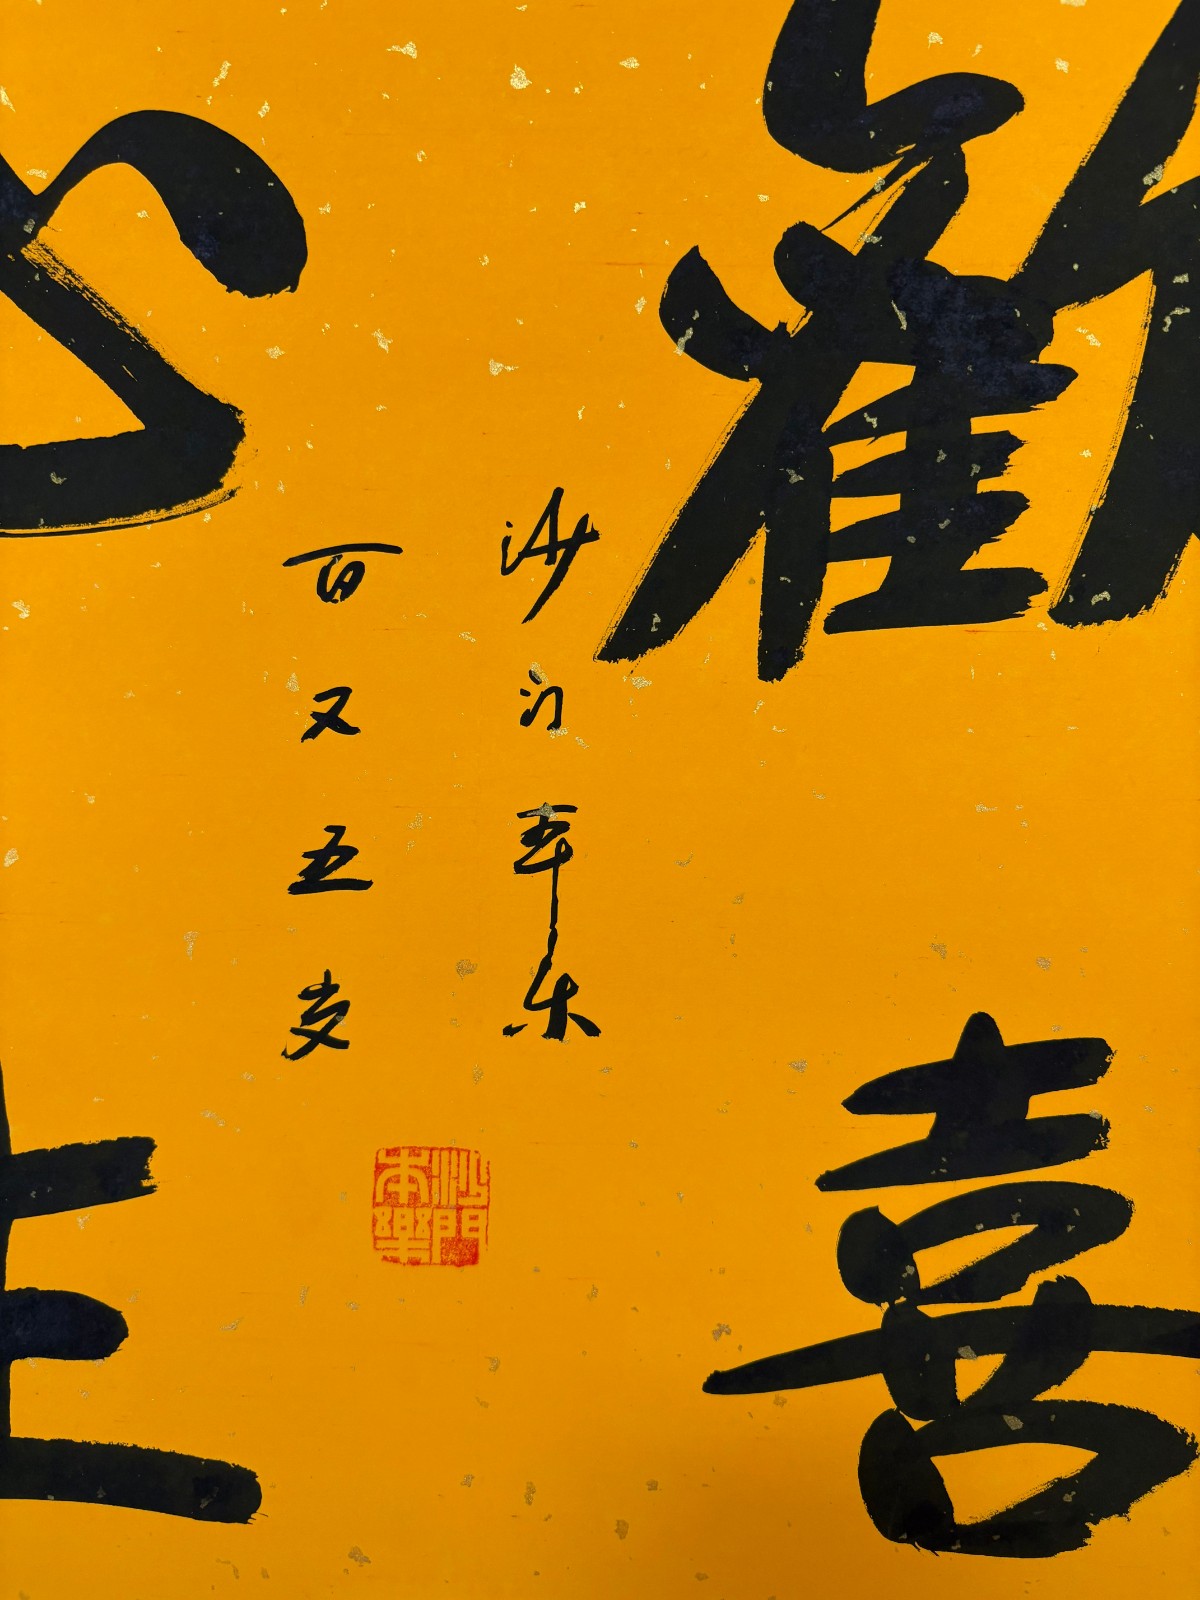 歡喜
沙门本乐
百又五岁
沙門
本樂